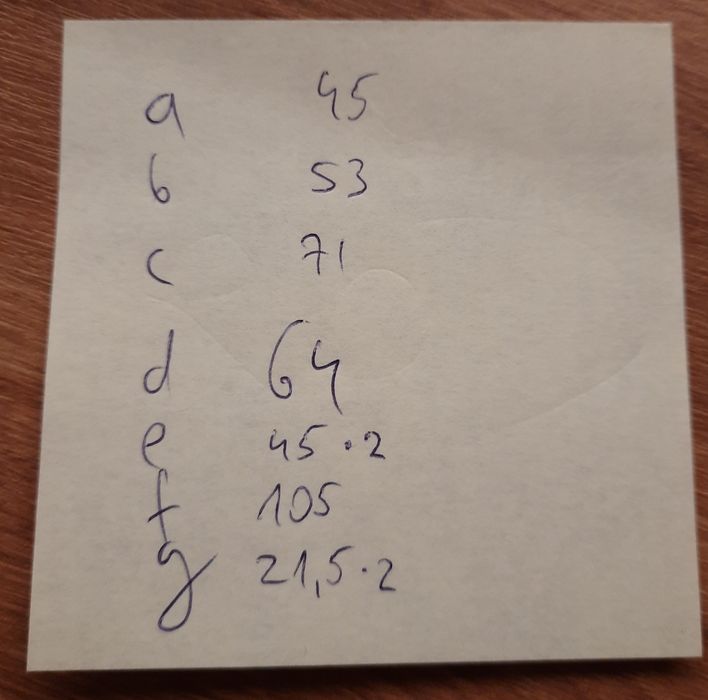 a 45
b 53
c 71
d 64
e 45 · 2
f 105
g 21,5 · 2